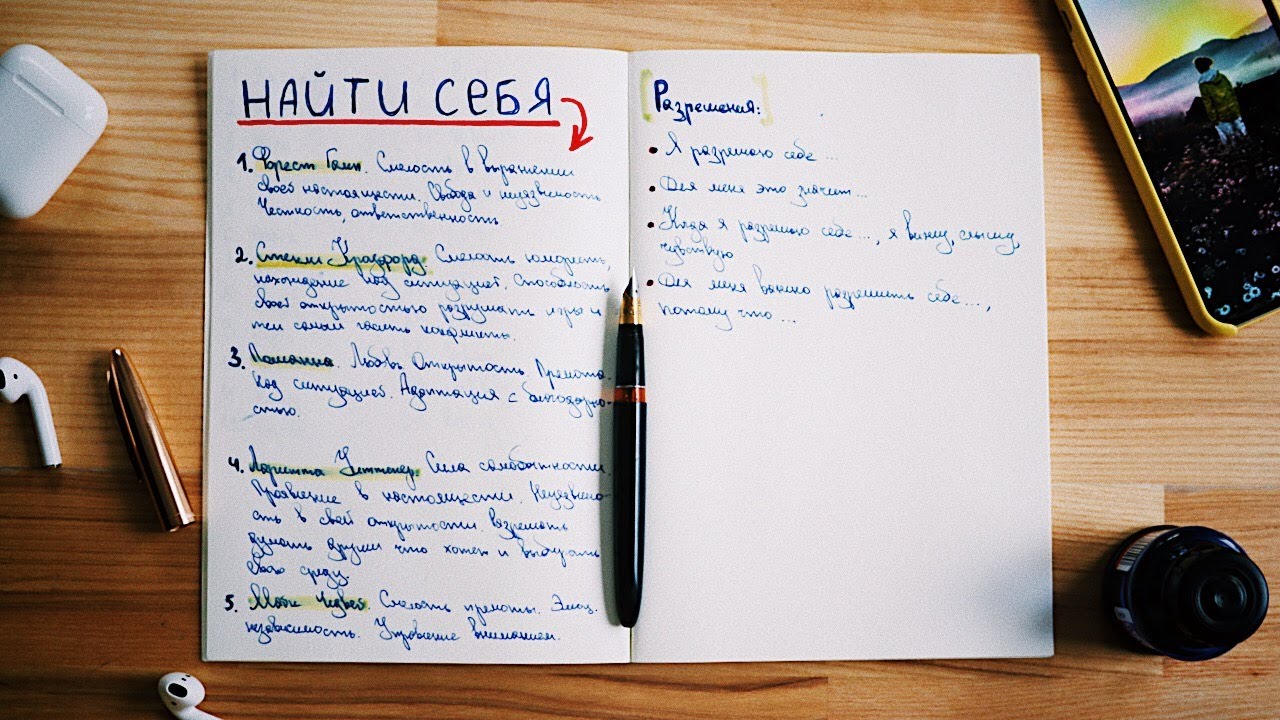 НАЙТИ СЕБЯ
1. Форест Гамп. Смелость в выражении
своей настоящести. Свобода и неуязвимость
Честность, ответственность
2. Стенли Кроуфорд. Смелость
нахождение над ситуацией. Способность
своей открытостью разрушать игры и
тем самым гасить конфликты.
3. Поллианна. Любовь. Открытость. Прямота.
Над ситуацией. Адаптация с благодарно-
стью.
4. Лоретта Сила самобытности.
Проявление в настоящести. Неуязвимо-
сть в своей открытости. Разрешать
думать другим что хотят и выбирать
свою среду.
5. Смелость прямоты. Эмоц.
независимость. Управление вниманием.
Разрешения:
• Я разрешаю себе ...
• Для меня это значит ...
• Когда я разрешаю себе ..., я вижу, слышу,
чувствую
• Для меня важно разрешить себе ...,
потому что ...